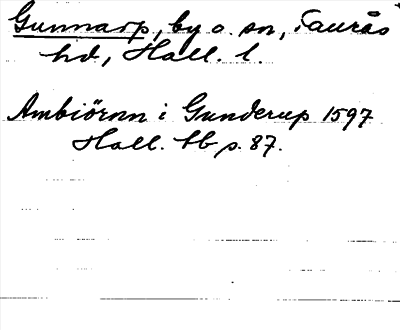 Gunnarp, by o. sn, Faurås
hd., Hall. l.
Ambiörnn i Gunderup 1597
Hall. tb p. 87.